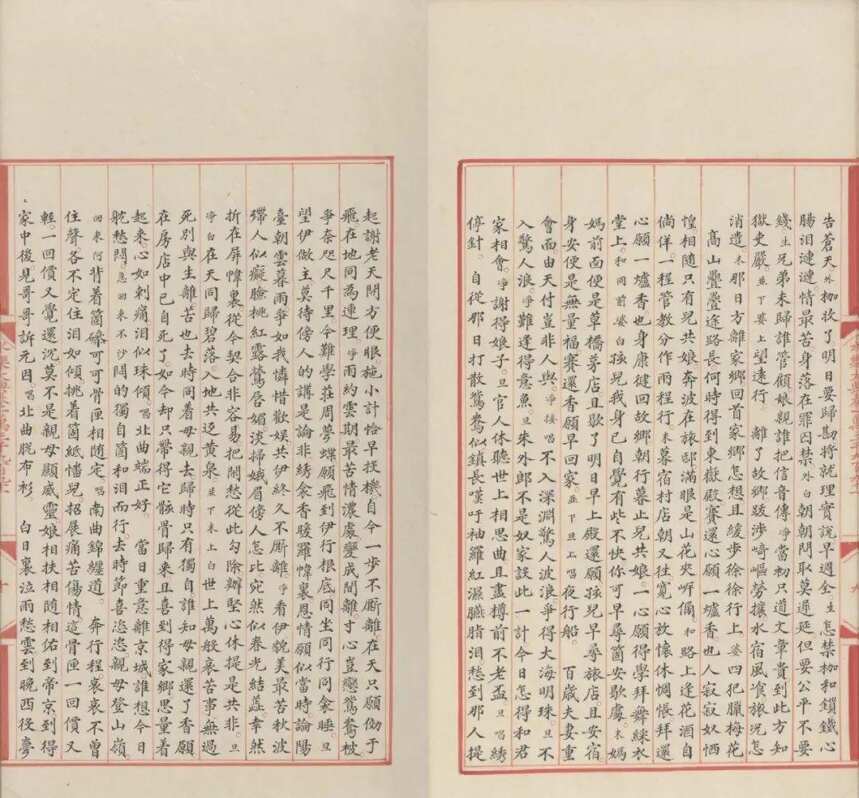 告蒼天外枷收了明日要歸勘將就理實說早週全生怎禁枷和鎖鐵心
腸泪漣漣情最苦身落在罪囚禁外白朝朝鬥取莫遲延但要公平不要
錢生兄弟未歸誰管顧娘親誰把信音傳凈當初只道文章貴到此方知
獄吏嚴並下婆上望遠行 離了故鄉跋涉崎嶇勞攘水宿風飡旅況怎
消遣末那日方離家鄉回首家鄉怎想且緩步徐徐行上婆四犯臘梅花
高山疊疊途路長何時得到東嶽殿賽還心願一爐香也人寂寂奴恓
惶相隨只有兒共娘奔波在旅邸滿眼是山花夾岍傌和路上逢花酒自
倘佯一程管教分作兩程行末暮宿村店朝又往寬心放懷休惆悵拜還
心願一爐香也身康健回故鄉朝行暮止兒共娘一心願得學拜舞綵水
堂上和同前婆白孩兒我身已自覺有些不快你可早尋箇安歇處末媽
媽前面便是草橋茅店且歇了明日早上殿還願孩兒早尋旅店且安宿
身安便是無量福賽還香願早回家並下旦上唱夜行船 百歲夫妻重
會面由天付豈非人與凈接唱不入深淵驚人波浪爭得大海明珠旦不
入驚人浪凈難逢得意魚旦朱外郎不是奴家設此一計今日怎得和君
家相會凈謝得娘子旦官人休聽世上相思曲且盡樽前不老盃旦唱綉
停針 自從那日打散鴛鴦似鎮長嘆吁袖羅紅濕臙脂泪愁到那人提
起謝老天閒方便眼施小計恰早投機自今一步不廝離在天只願劬于
飛在地同為連理凈雨約雲期最苦情濃處變成間離寸心豈戀鴛鴦被
爭奈咫尺千里今難學莊周夢蝶願飛到伊行根底同坐同行同衾睡旦
望伊做主莫待傍人的講是論非綉衾香暖羅幃裏恩情願似當時論陽
臺朝雲暮雨爭如我憐惜歡娛共伊終久不廝離凈看伊貌美最苦秋波
殢人似癡臉桃紅露鶯唇媚淡掃娥眉傍人怎比宛然似春光結蕋幸然
折在屏幃裏從今契合非容易把閒愁從此勾除辦堅心休提是共非旦
凈白在天同歸碧落入地共返黄泉並下末上白世上萬般哀苦事無過
死別與生離苦也去時同着母親去歸時只有獨自誰知母親還了香願
在房店中已自死了如今却只帶得它骸骨歸來且喜到得家鄉思量着
起來心如刺痛泪似珠傾唱北曲端正好 當日重意離京城誰想今日
舵愁悶急回來不沙悶的獨自箇和泪而行去時節喜恣恣親母登山嶺
回來何背着箇磣可可骨匣相隨定唱南曲錦纏道 奔行程哀哀不曾
住聲各不定住泪如傾挑着箇紙幡兒招展痛苦傷情這骨匣一回價又
輕一回價又覺還沉莫不是親母顯威靈娘相扶相隨相佑到帝京到得
家中後見哥哥訴元因唱北曲脫布衫 白日裏泣雨愁雲到晚西後夢